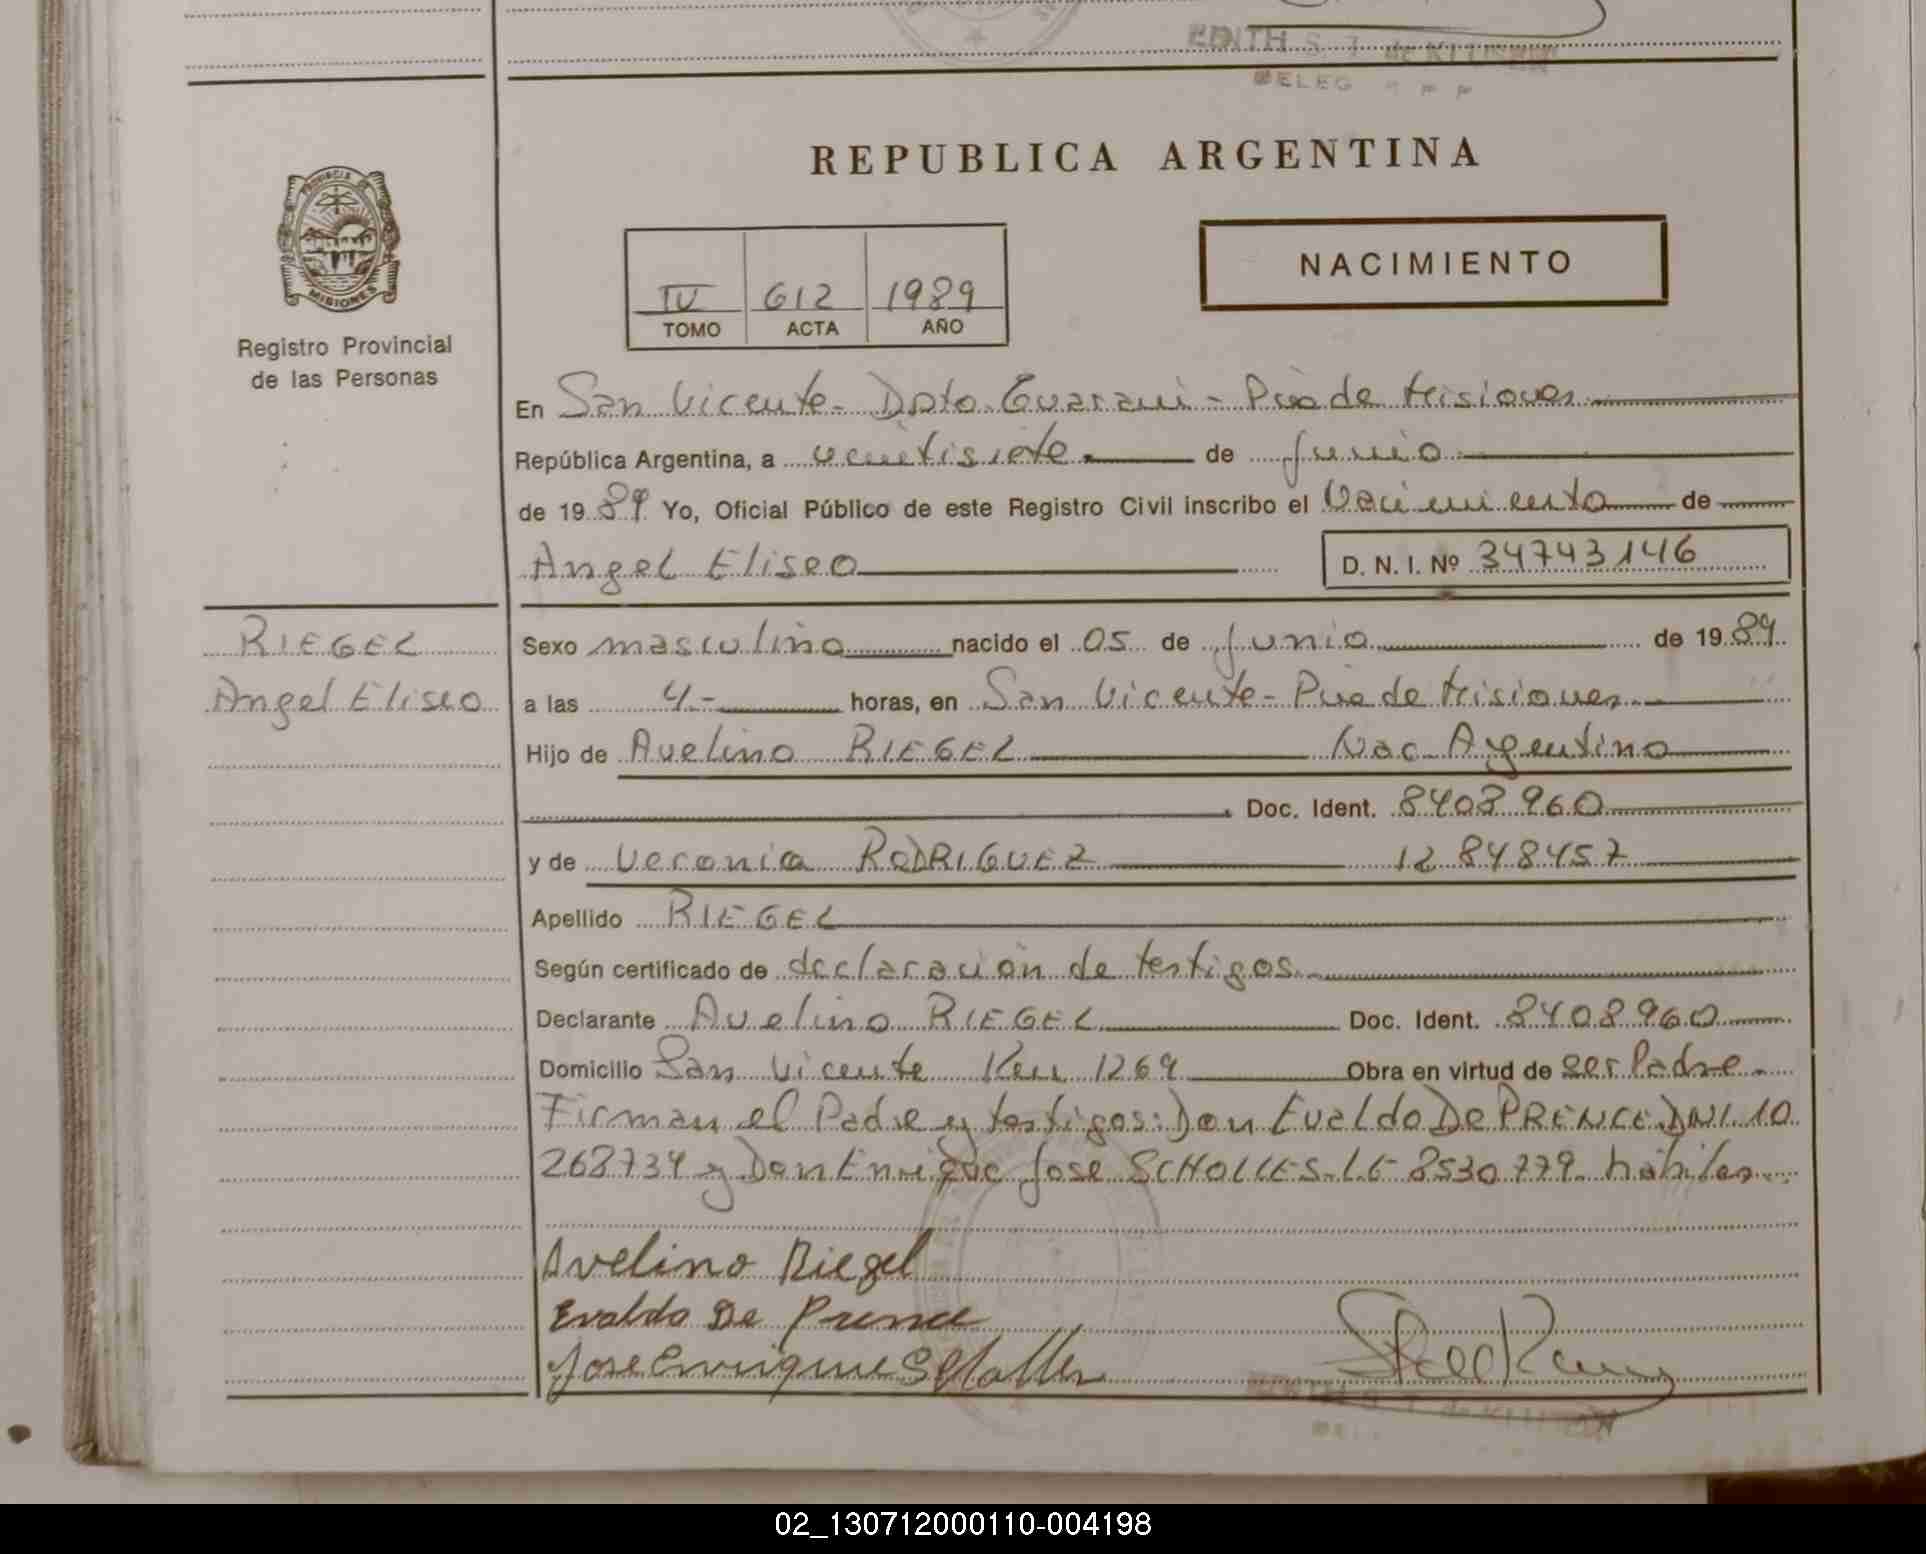 EDITH S. T. de KLUSENER
DELEG
REPUBLICA ARGENTINA
PROVINCIA DE
MISIONES
NACIMIENTO
IV 612 1989
TOMO ACTA AÑO
Registro Provincial
de las Personas
En San Vicente - Dpto Guarani - Pcia de Misiones
República Argentina, a veintisiete de junio
de 1989 Yo, Oficial Público de este Registro Civil inscribo el Nacimiento de
Angel Eliseo D. N. I. Nº 34743146
RIEGEL
Angel Eliseo
Sexo masculino nacido el 05 de junio de 1989
a las 4.- horas, en San Vicente - Pcia de Misiones
Hijo de Avelino RIEGEL Nac. Argentino
Doc. Ident. 8408960
y de Veronica RODRIGUEZ 12848457
Apellido RIEGEL
Según certificado de declaración de testigos
Declarante Avelino RIEGEL Doc. Ident. 8408960
Domicilio San Vicente Km 1269 Obra en virtud de ser Padre
Firman el Padre y testigos: Don Evaldo De PRENCE DNI. 10
268734 y Don Enrique Jose SCHOLLES - LE 8530779 habiles
Avelino Riegel
Evaldo De Prence
Jose Enrique Scholles
02_130712000110-004198